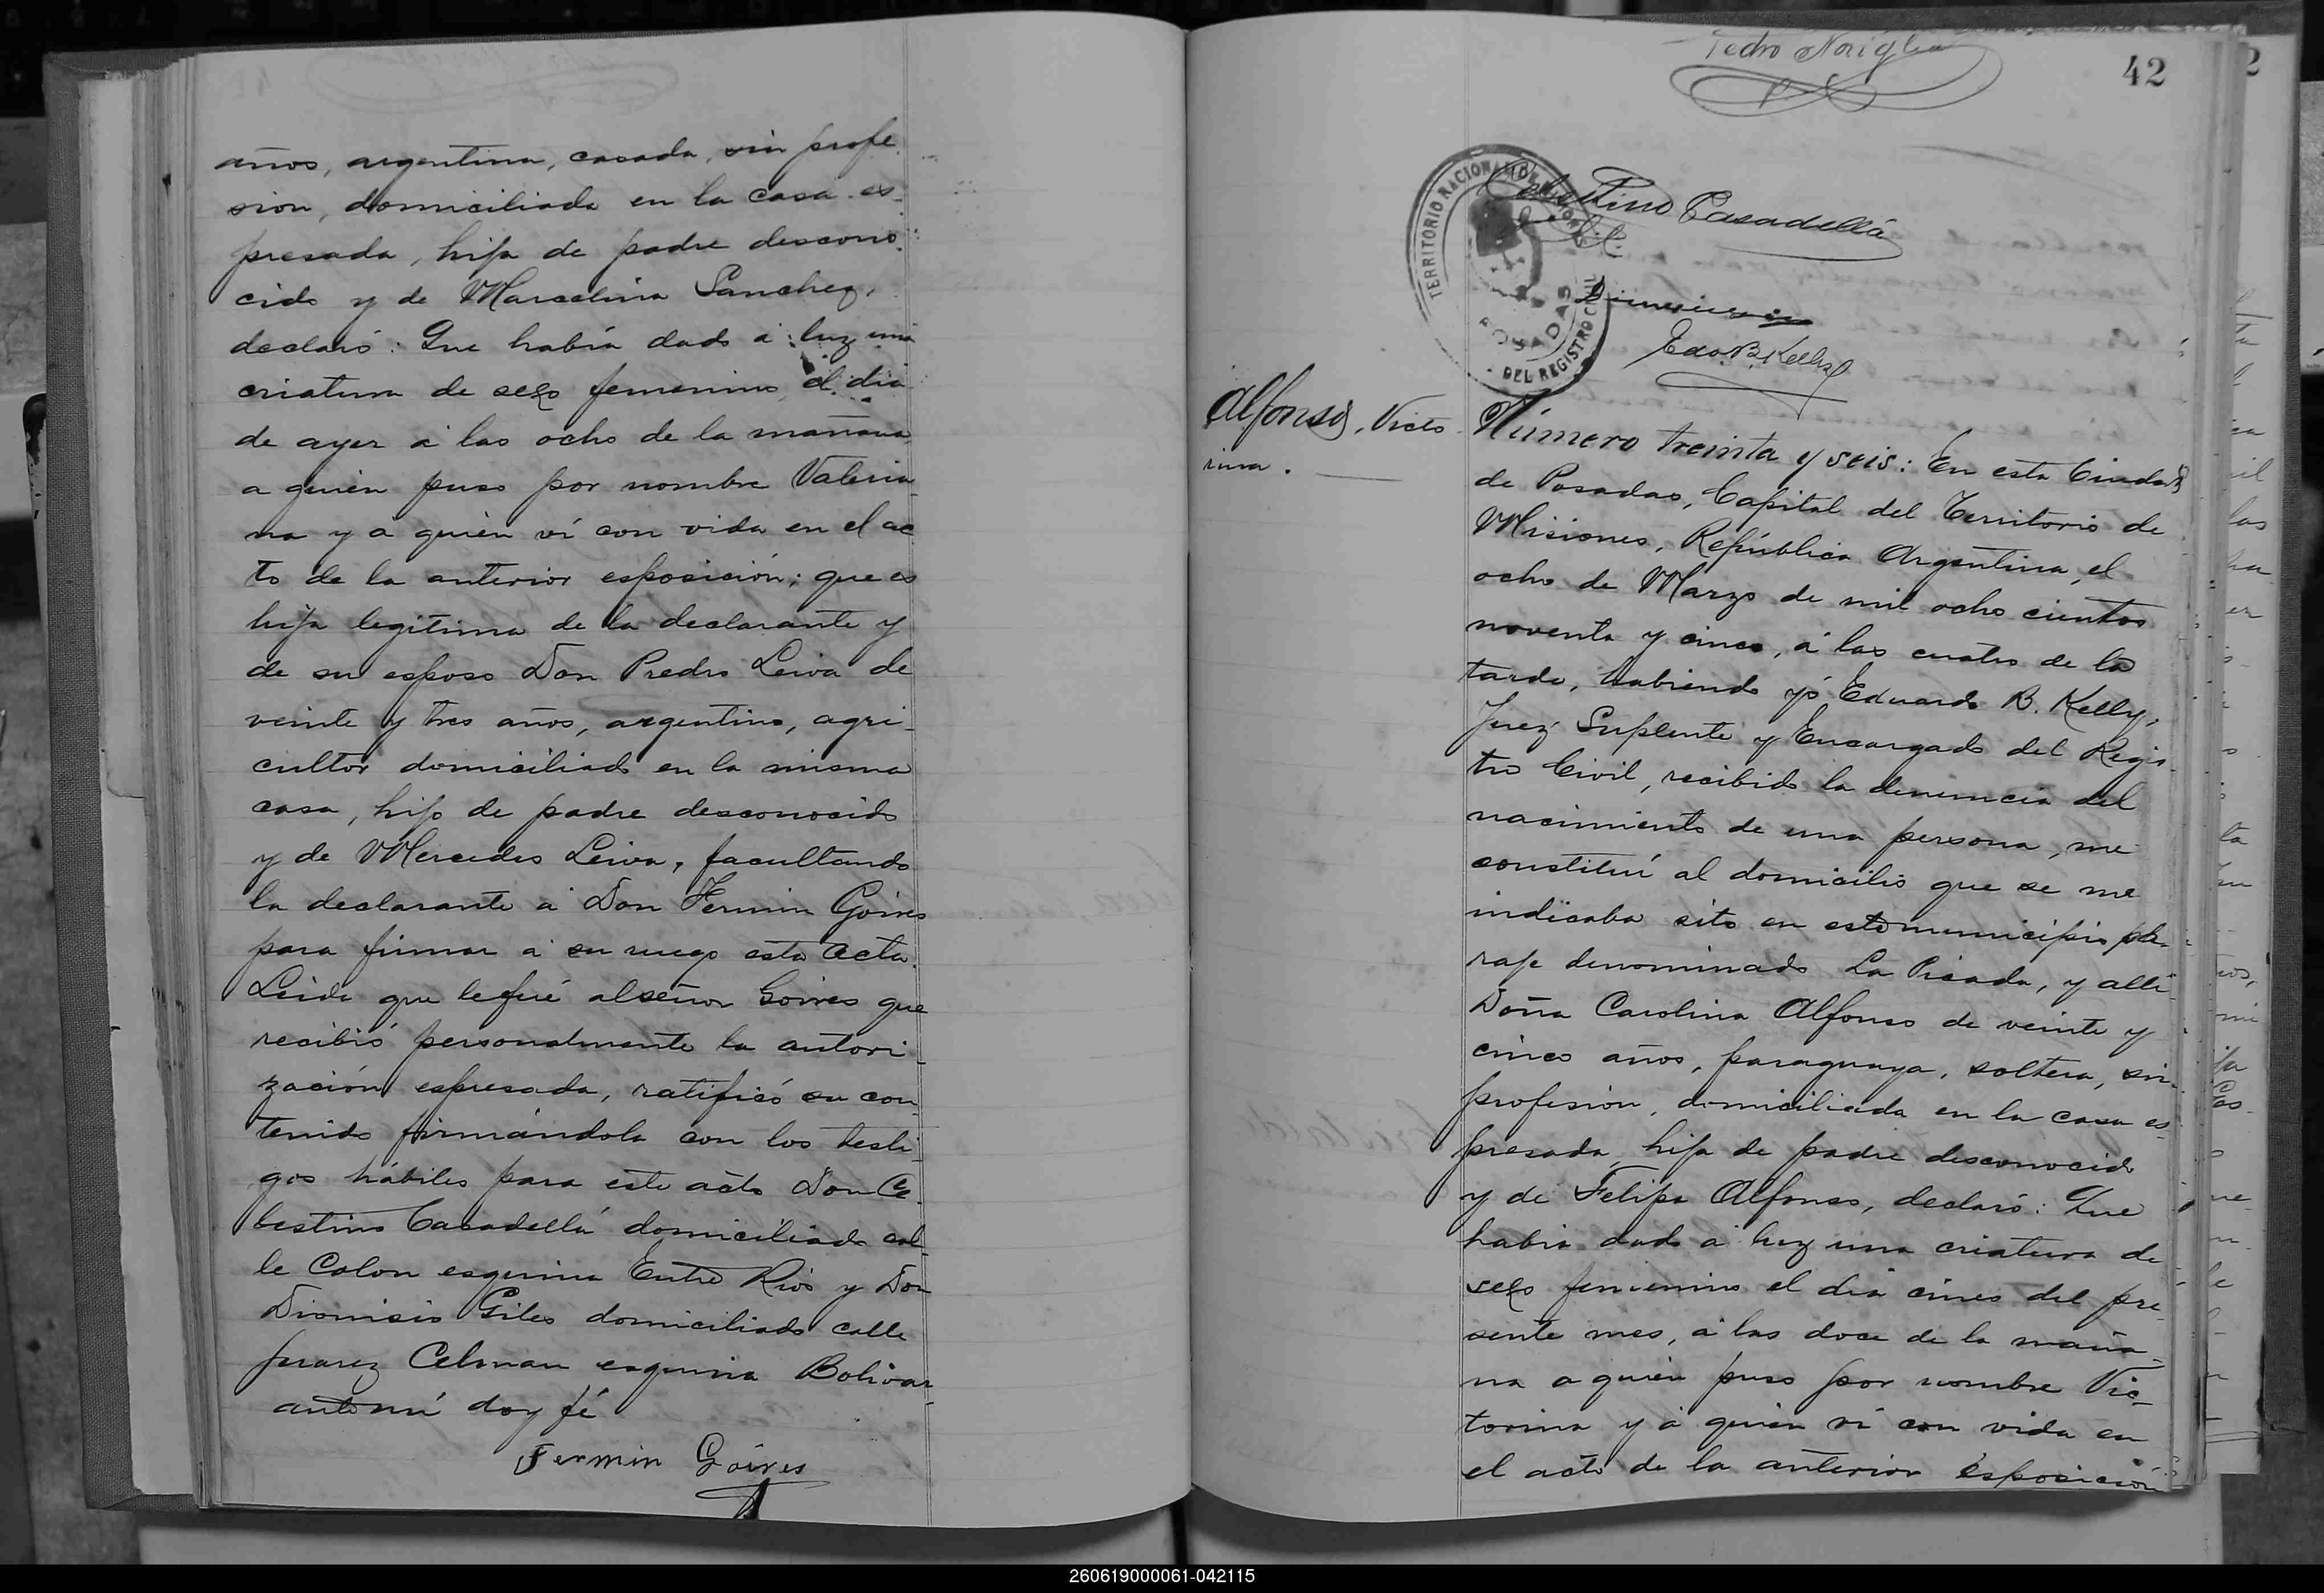 años, argentina, casada, sin profe
sion, domiciliada en la casa es-
presada, hija de padre descono
cido y de Marcelina Sanchez,
declaró: Que había dado á luz una
criatura de sexo femenino, el dia
de ayer á las ocho de la mañana
a quien puso por nombre Valeria
na y a quién ví con vida en el ac
to de la anterior esposición; que es
hija legitima de la declarante y
de su esposo Don Predro Leiva de
veinte y tres años, argentino, agri-
cultor domiciliado en la misma
casa, hijo de padre desconocido
y de Mercedes Leiva, facultando
la declarante á Don Fermin Goires
para firmar á su ruego esta Acta.
Leida que le fué al señor Goires que
recibió personalmente la autori-
zación espresada, ratificó su con-
tenido firmándola con los testi-
gos hábiles para este acto Don Ce-
lestino Casadellá domiciliado cal-
le Colon esquina Entre Rios y Don
Dionisio Giles domiciliado calle
Juarez Celman esquina Bolivar
ante mí doy fé
Fermin Goires
Pedro Noriglia
42
TERRITORIO NACIONAL DE MISIONES
POSADAS
DEL REGISTRO CIVIL
Celestino Casadellá
Edo B. Kelly
Alfonso, Victo
rina.
Número treinta y seis: En esta Ciudad
de Posadas, Capital del Territorio de
Misiones, República Argentina, el
ocho de Marzo de mil ocho cientos
noventa y cinco, á las cuatro de la
tarde, habiendo yó Eduardo B. Kelly,
Juez Suplente y Encargado del Regis-
tro Civil, recibido la denuncia del
nacimiento de una persona, me
constituí al domicilio que se me
indicaba sito en este municipio pa-
raje denominado La Picada, y allí
Doña Carolina Alfonso de veinte y
cinco años, paraguaya, soltera, sin
profesion, domiciliada en la casa es-
presada, hija de padre desconocido
y de Felipa Alfonso, declaró: Que
habia dado á luz una criatura de
sexo femenino el dia cinco del pre-
sente mes, á las doce de la maña-
na a quien puso por nombre Vic-
torina y á quien ví con vida en
el acto de la anterior esposición
260619000061-042115